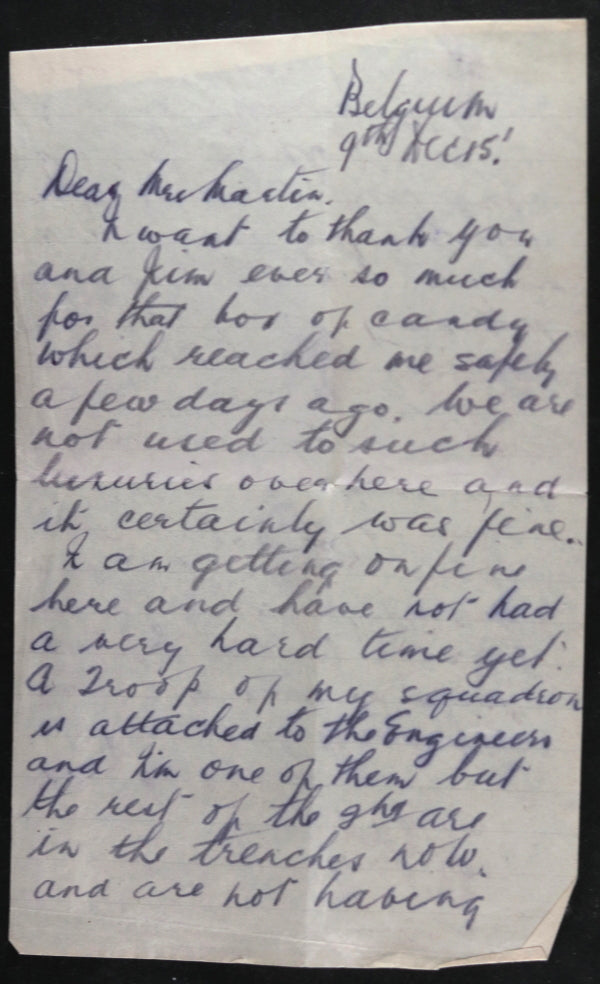 Belgium
9th Dec 15.
Dear Mrs Martin.
I want to thank you
and Jim ever so much
for that box of candy
which reached me safely
a few days ago. We are
not used to such
luxuries over here and
it certainly was fine.
I am getting on fine
here and have not had
a very hard time yet.
A Troop of my squadron
is attached to the Engineers
and I'm one of them but
the rest of the are
in the trenches now.
and are not having